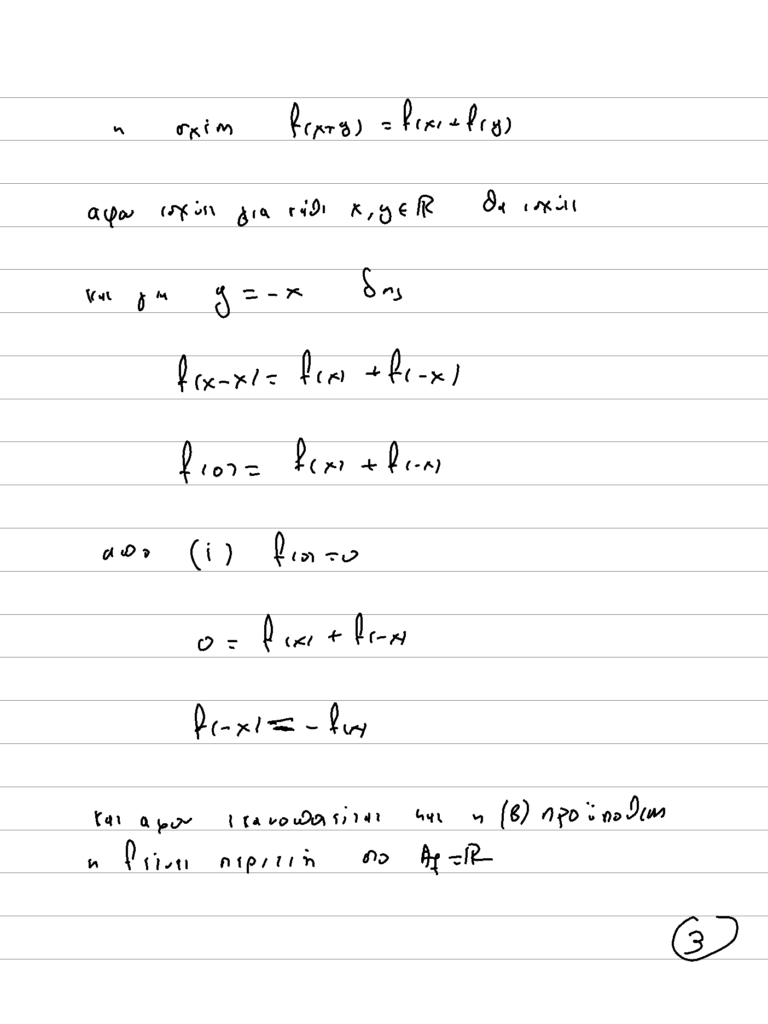 η σχέση f(x+y) = f(x) + f(y)
αφου ισχύει για κάθε x, y ∈ ℝ θα ισχύει
και για y = -x δης
f(x-x) = f(x) + f(-x)
f(0) = f(x) + f(-x)
απο (i) f(0) = 0
0 = f(x) + f(-x)
f(-x) = - f(x)
και αφου ικανοποιείται και η (Β) προϋποθεση
η f είναι περιττή στο Af = ℝ
3